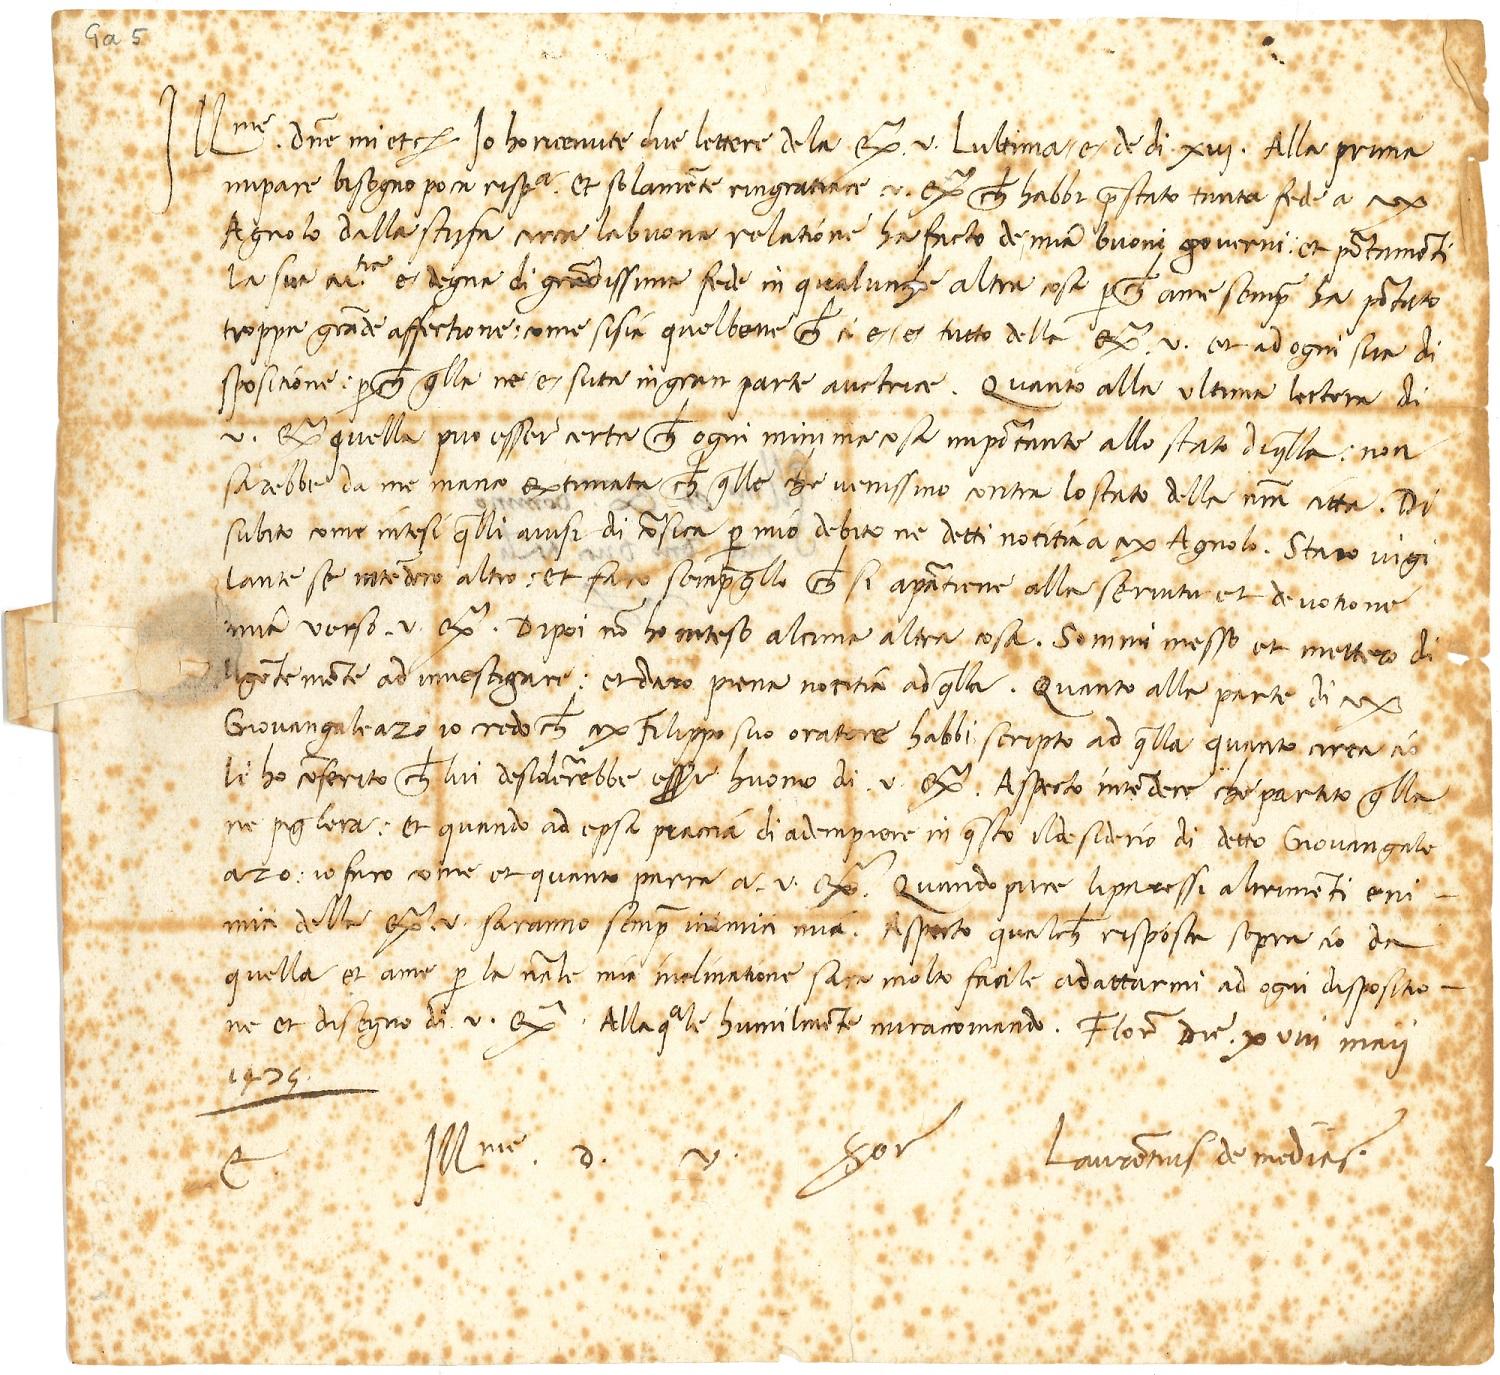 Ga 5
Ill.me Dne mi etc. Io ho ricevute due lettere de la Ex. v. Lultima e de di xvi. Alla prima
mi pare bisegno poca rispa. et solamente ringratiare v. Exª ch habbi prestato tanta fede a
Agnolo dalla stufa circa la buona relatione ha facto de miei buoni governi: et portamenti
la sua e degna di grandissima fede in qualunche altra cosa perch a me sempre ha portato
troppa grande affectione: come si sia quel bene ch ci e, e tutto della Exª v. et ad ogni sua di
spositione: perch qlla ne e suta in gran parte auctrice. Quanto alla ultima lectera di
v. Exª quella puo esser certa ch ogni minima cosa importante allo stato di qlla: non
sarebbe da me manco extimata ch qlle che venissino contra lo stato della nra citta. Di
subito come intesi qlli avisi di Corsica per mio debito ne detti notitia a Agnolo. Staro vigi
lante se intendero altro: et faro sempre qllo ch si apartiene alla servitu et devotione
mia verso v. Exª. Dipoi no ho inteso alcuna altra cosa. Sommi messo et mettero di
ligentemente ad investigare: et daro piena notitia ad qlla. Quanto alla parte di
Giovangaleazo io credo ch Filippo suo oratore habbi scripto ad qlla quanto circa cio
li ho conferito ch lui desiderrebbe esser huomo di v. Exª. Aspecto intendere che partito qlla
ne piglera: et quando ad epsa piaccia di adempiere in qsto il desiderio di detto Giovangale
azo: io faro come et quanto parra a. v. Exª. Quando pure li paressi altrimenti e ni-
mici della Exª v. saranno sempre inimici mia. Aspecto qualch risposta sopra cio da
quella et a me per la nrale mia inclinatione sara molto facile adattarmi ad ogni dispositio-
ne et disegno di v. Exª. Alla qale humilmente mi racomando. Flor. Die. xviii maii
1475.
E. Ill.me. D. V. Sor Laurentius de medicis.